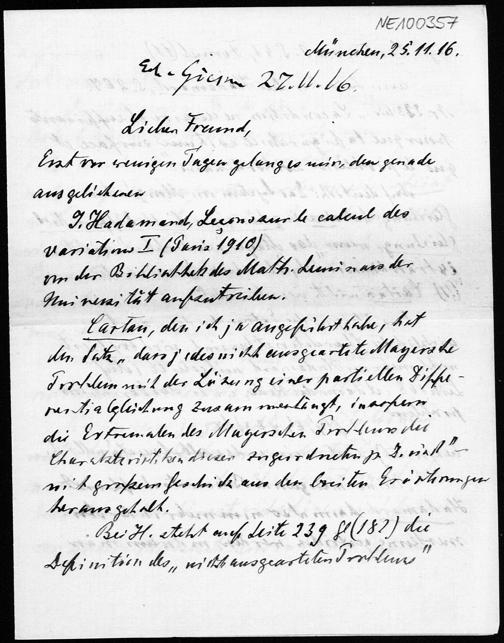 NE100357
München, 25.11.16.
27.11.16.
Lieber Freund,
Erst vor wenigen Tagen gelang es mir, den gerade
ausgeliehenen
J. Hadamard, Leçons sur le calcul des
variations I (Paris 1910)
von der Bibliothek des Math. Seminars der
Universität aufzutreiben.
Cartan, den ich ja angeführt habe, hat
den Satz „dass jedes nicht ausgeartete Mayersche
Problem mit der Lösung einer partiellen Diffe-
rentialgleichung zusammenhängt, insofern
die Extremalen des Mayerschen Problems die
Charakteristiken dieser
mit grossem Geschick aus den breiten Erörterungen
herausgeholt.
Bei H. steht auf Seite 239 § (182) die
Definition des „nicht ausgearteten Problems"